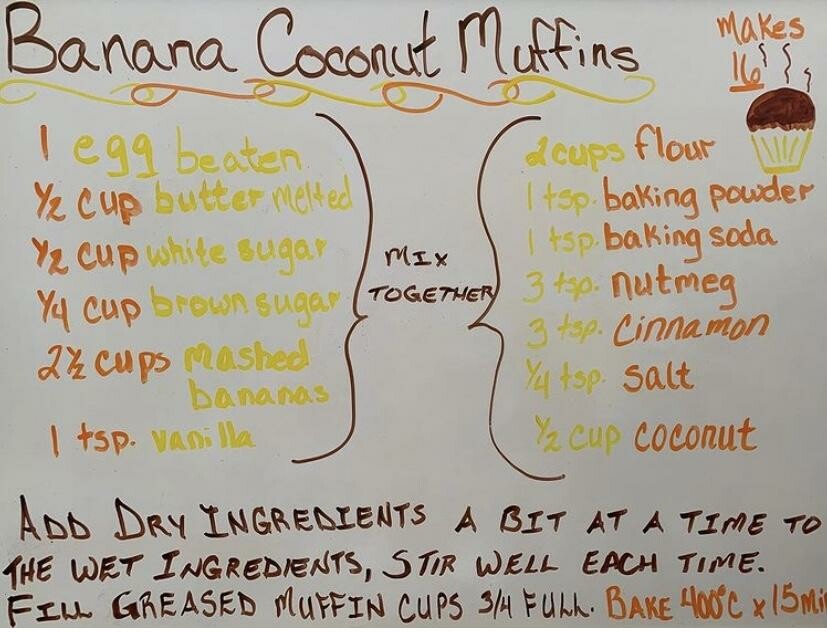 Banana Coconut Muffins
Makes
16
1 egg beaten
½ cup butter melted
½ cup white sugar
¼ cup brown sugar
2½ cups mashed
bananas
1 tsp. vanilla
MIX
TOGETHER
2 cups flour
1 tsp. baking powder
1 tsp. baking soda
3 tsp. nutmeg
3 tsp. cinnamon
¼ tsp. salt
½ cup coconut
ADD DRY INGREDIENTS A BIT AT A TIME TO
THE WET INGREDIENTS, STIR WELL EACH TIME.
FILL GREASED MUFFIN CUPS 3/4 FULL. BAKE 400°C x 15 min